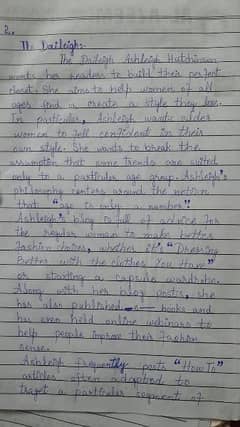 2.
The Daileigh:-
The Daileigh Ashleigh Hutchinson
wants her readers to build their perfect
closet. She aims to help women of all
ages find a create a style they love.
In particular, Ashleigh wants older
women to fell confident in their
own style. She wants to break the
assumption that some trends are suited
only to a particular age group. Ashleigh's
philosophy centers around the notion
that "age is only a number".
Ashleigh's blog is full of advice for
the regular woman to make better
fashion choices, whether it's "Dressing
Better with the clothes You Have"
or starting a capsule wardrobe.
Along with her blog posts, she
has also published books and
has even held online webinars to
help people improve their fashion
sense.
Ashleigh frequently posts "How To"
articles often adapted to
traget a particular segment of